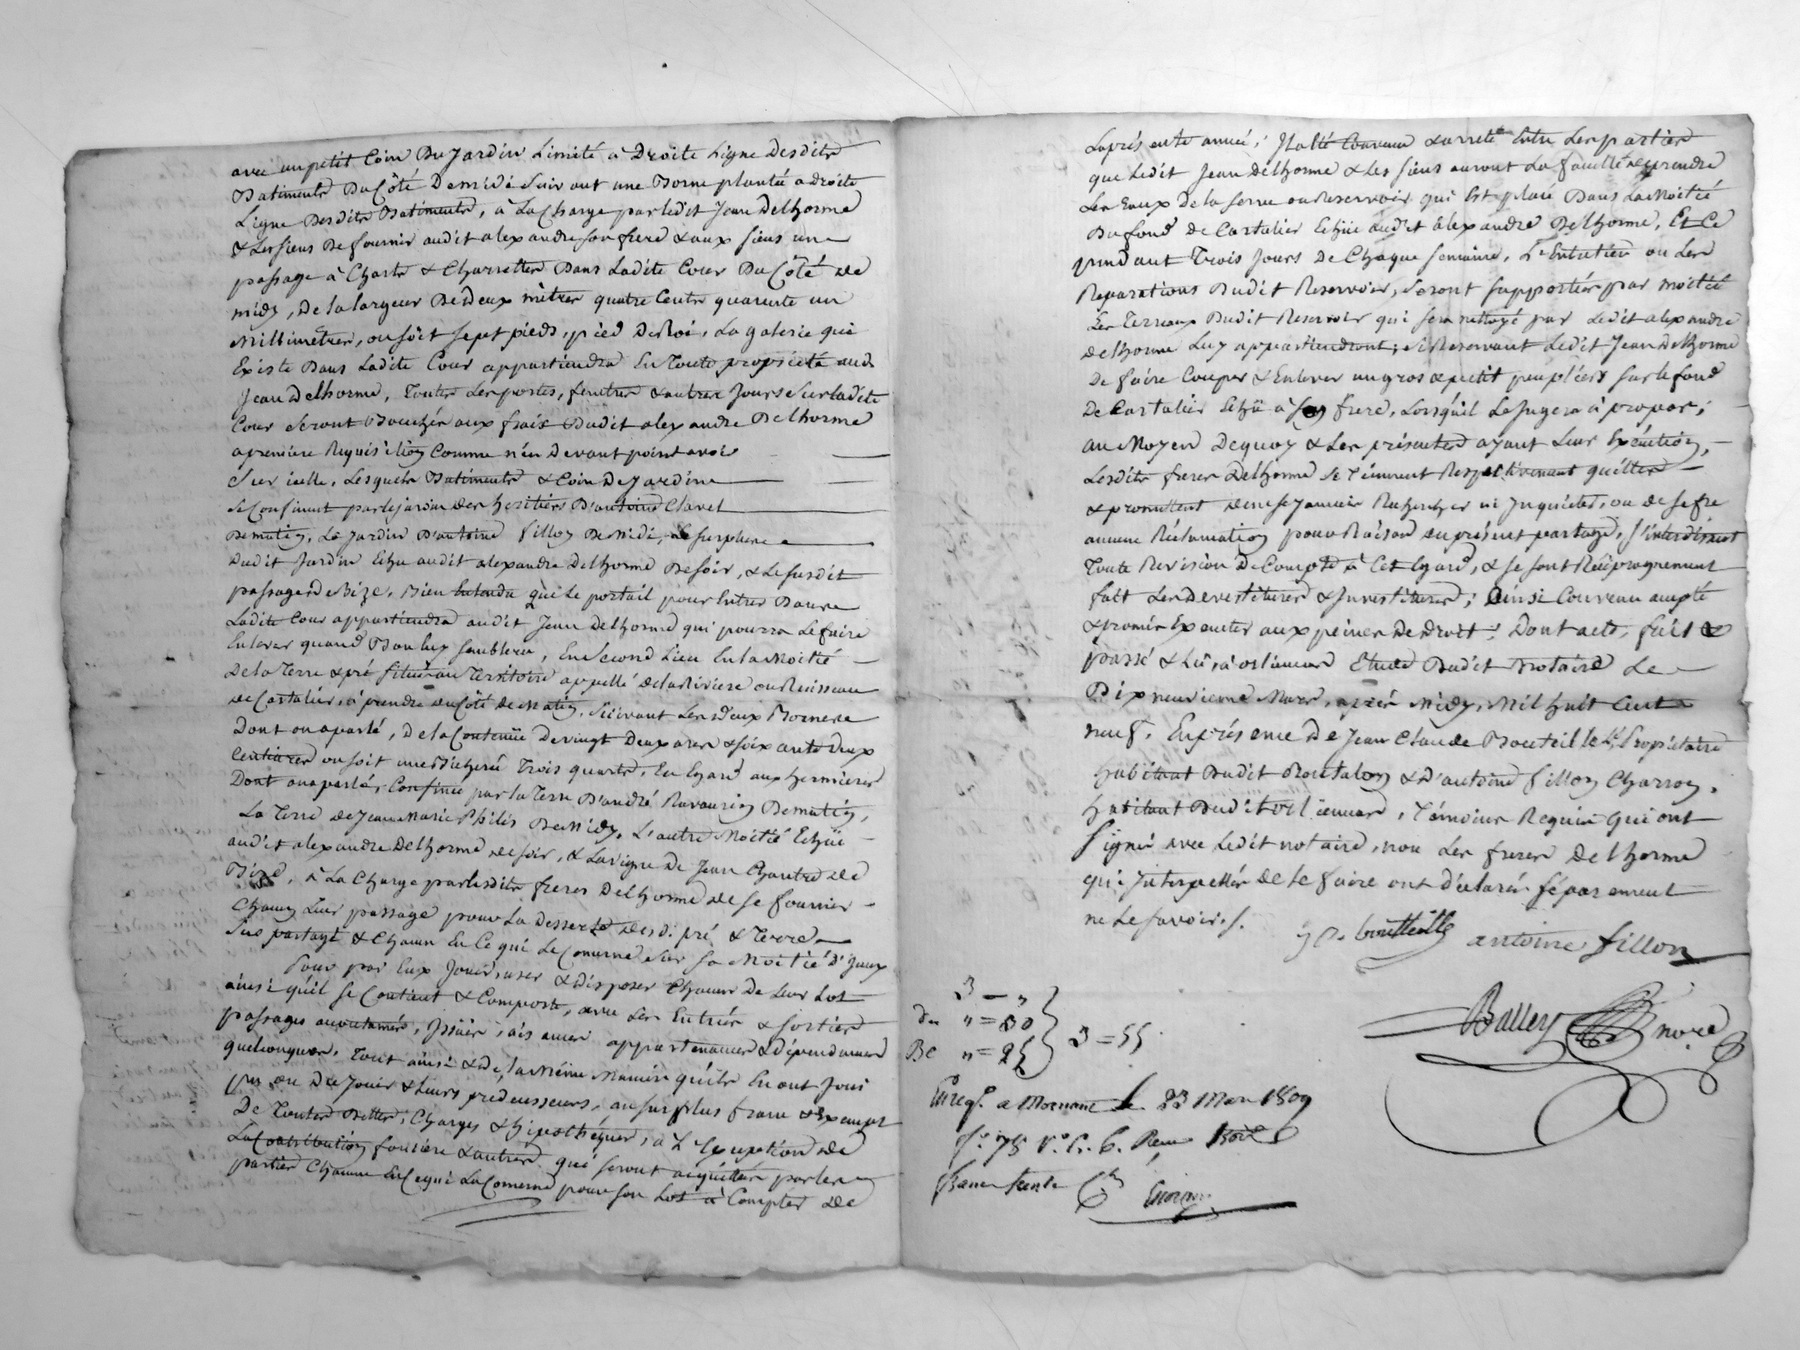 avec un petit Coin Du Jardin Limité à Droite Ligne Desdits
Batiments Du Côté De midi Suivant une Borne plantée a droite
Ligne Desdits Batiments, à La Charge par ledit Jean Delhorme
& Les siens De fournir audit alexandre son frere & aux siens un
passage à Chars & Charrettes Dans Ladite Cour Du Côté de
midy, De la largeur De Deux mètres quatre Cents quarante un
Millimètres, ou soit sept pieds, pied De Roi, La galerie qui
Existe Dans Ladite Cour appartiendra En Toute propriété aud.
Jean Delhorme, Toutes Les portes, fenetres & autres Jours Sur ladite
Cour Seront Bouchés aux frais Dudit alexandre Delhorme
a premiere Requisition Comme n'en Devant point avoir
Sur icelle, Lesquels Batiments & Coin De Jardin
Se Confinent par le jardin Des heritiers D'antoine Clavel
De matin, Le Jardin D'antoine fillon De Midi, Le surplus
Dudit Jardin Echu audit alexandre Delhorme De soir, & Le susdit
passage De Bize, Bien Entendu que Le portail pour Entrer Dans
Ladite Cour appartiendra audit Jean Delhorme qui pourra Le faire
Enlever quand Bon luy semblera, En Second Lieu En la Moitié
De la Terre & pré situés au Territoire appellé de la Riviere ou Ruisseau
de Cartalier, à prendre du Côté de Matin, Suivant Les Deux Bornes
Dont on a parlé, De la Contenüe De vingt Deux ares & soixante Deux
Centiares ou soit une Bicherée Trois quarts, En Egard aux hermieres
Dont on a parlé, Confinée par la Terre D'andré Ravaurin De matin,
La Terre de Jean Marie Philis De Midy, L'autre Moitié Echüe
audit alexandre Delhorme de soir, & La vigne De Jean De
Bize, à La Charge par lesdits freres Delhorme de se fournir
Chacun Leur passage pour La Desserte desd. pré & Terre
Sus partagé & Chacun En Ce qui Le Concerne Sur Sa Moitié D'Yceux
Pour par Eux Jouir, user & Disposer Chacun De Leur Lot
ainsi qu'il se Contient & Comporte, avec Les Entrées & sorties
passages accoutumés, Issües, aisances appartenances & Dépendances
quelconques, Tout ainsi & De la Même Maniere qu'ils En ont Joui
pu ou Du Jouir & Leurs predecesseurs, au surplus franc & Exempt
De Toutes Dettes, Charges & hipothéques, à L'Exception de
La Contribution fonciere & autres qui seront acquittées par les
parties Chacune En Ce qui La Concerne pour son Lot à Compter de
La présente année; Il a été Convenu & arreté Entre Les parties
que Ledit Jean Delhorme & Les siens auront La faculté de prendre
Les Eaux De la serve ou Reservoir qui Est placé Dans La Moitié
Du fond de Cartalier Echüe audit alexandre Delhorme, Et Ce
pendant Trois Jours De Chaque semaine, L'Entretien ou Les
Reparations Dudit Reservoir, Seront supportées par moitié
Les Terreaux Dudit Reservoir qui sera nettoyé par Ledit alexandre
delhorme Luy appartiendront; Se Reservant Ledit Jean Delhorme
De faire Couper & Enlever un gros & petit peupliers sur le fond
De Cartalier Echu à son frere, Lorsqu'il Le Jugera à propos;
au Moyen Dequoy & Les présentes ayant Leur Exécution,
Lesdits freres Delhorme Se Tiennent Respectivement quittes
& promettent de ne se Jamais Rechercher ni Inquieter, ou de se fre
aucune Réclamation pour Raison du présent partage, s'interdisant
Toute Revision De Compte à Cet Egard, & se sont Réciproquement
fait Les Devestitures & Investitures; ainsi Convenu accepté
& promis Executer aux peines De Droit; Dont acte, fait &
passé & Lû, à orlienard Etude Dudit Notaire Le
Dix neuvieme Mars, après Midy, Mil huit Cent
neuf. En présence De Jean Claude Bouteille Propriétaire
habitant Dudit Rontalon & D'antoine fillon Charron,
habitant Dudit orlienard, Témoins Requis qui ont
Signé avec Ledit notaire, non Les freres Delhorme
qui Interpellés de le faire ont déclaré séparement
ne Le savoir./.
J C. boutteille antoine fillon
Balley nore
3 — "
du " = 30
3 = 55
De " = 25
Enreg. a Mornant Le 23 Mars 1809
fo. 75 Vo. C. 6. Reçu